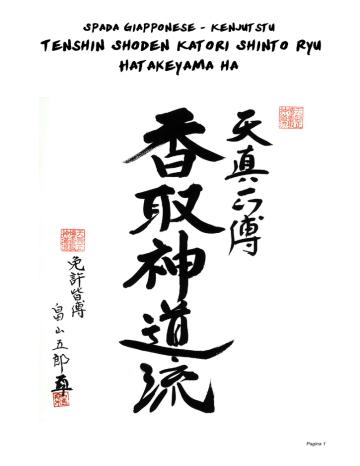 SPADA GIAPPONESE - KENJUTSTU
TENSHIN SHODEN KATORI SHINTO RYU
HATAKEYAMA HA
天真正傳
香取神道流
免許皆傳
畠山五郎
Pagina 1